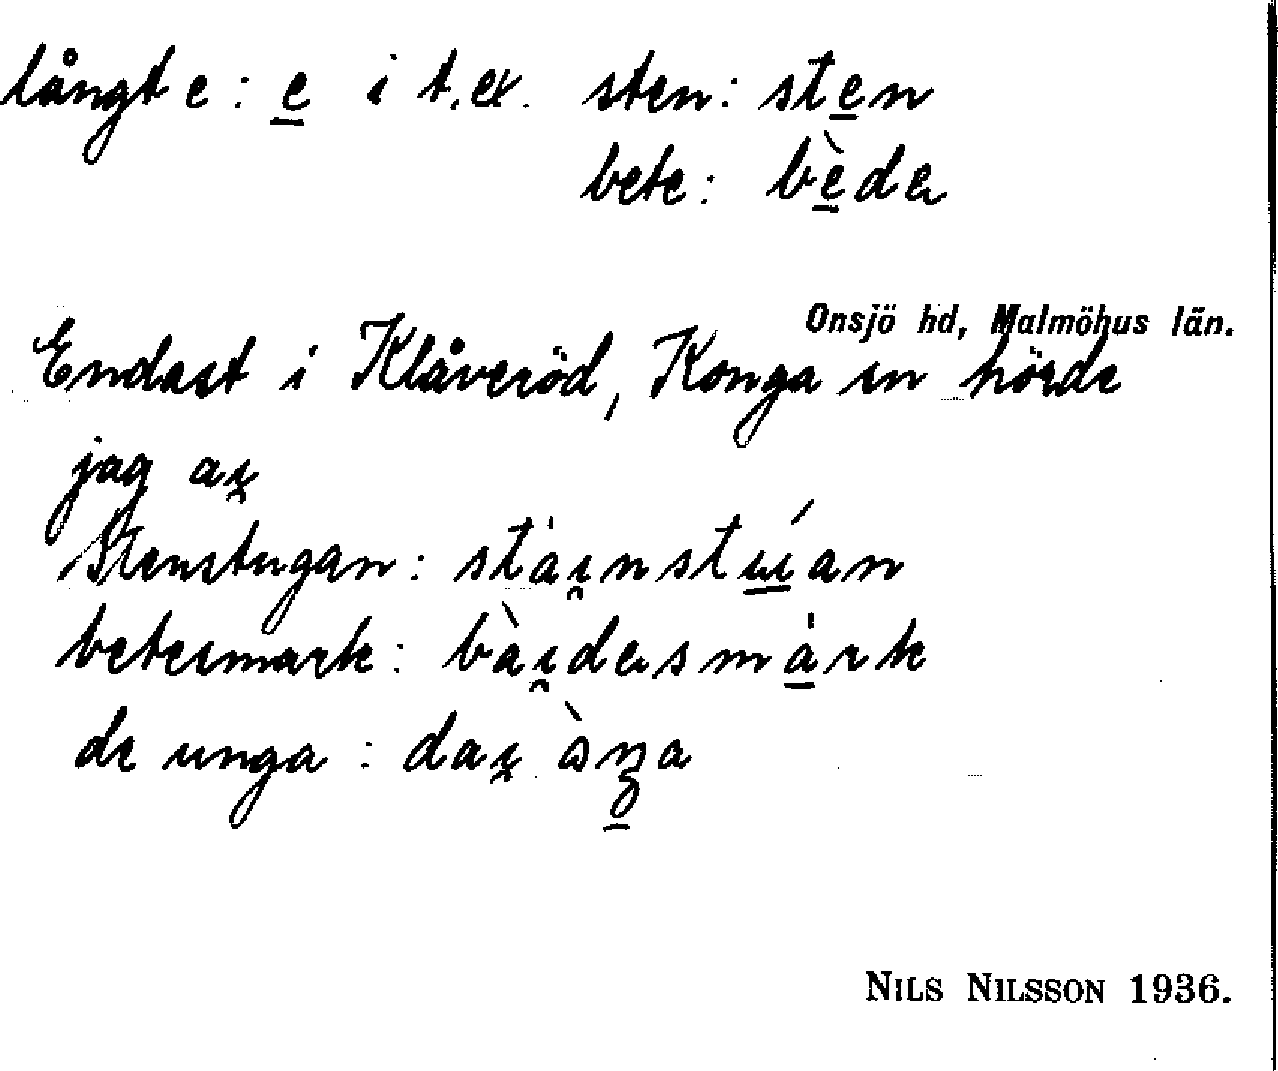 långt e : e̲ i t.ex. sten : ste̲n
bete : bè̲də
Onsjö hd, Malmöhus län.
Endast i Klåveröd, Konga sn hörde
jag aı̯
Stenstugan : sta̍ı̯nstɯ̲́an
betesmark : bàı̯dəsma̲̍rk
de unga : daı̯ ὰŋa
NILS NILSSON 1936.